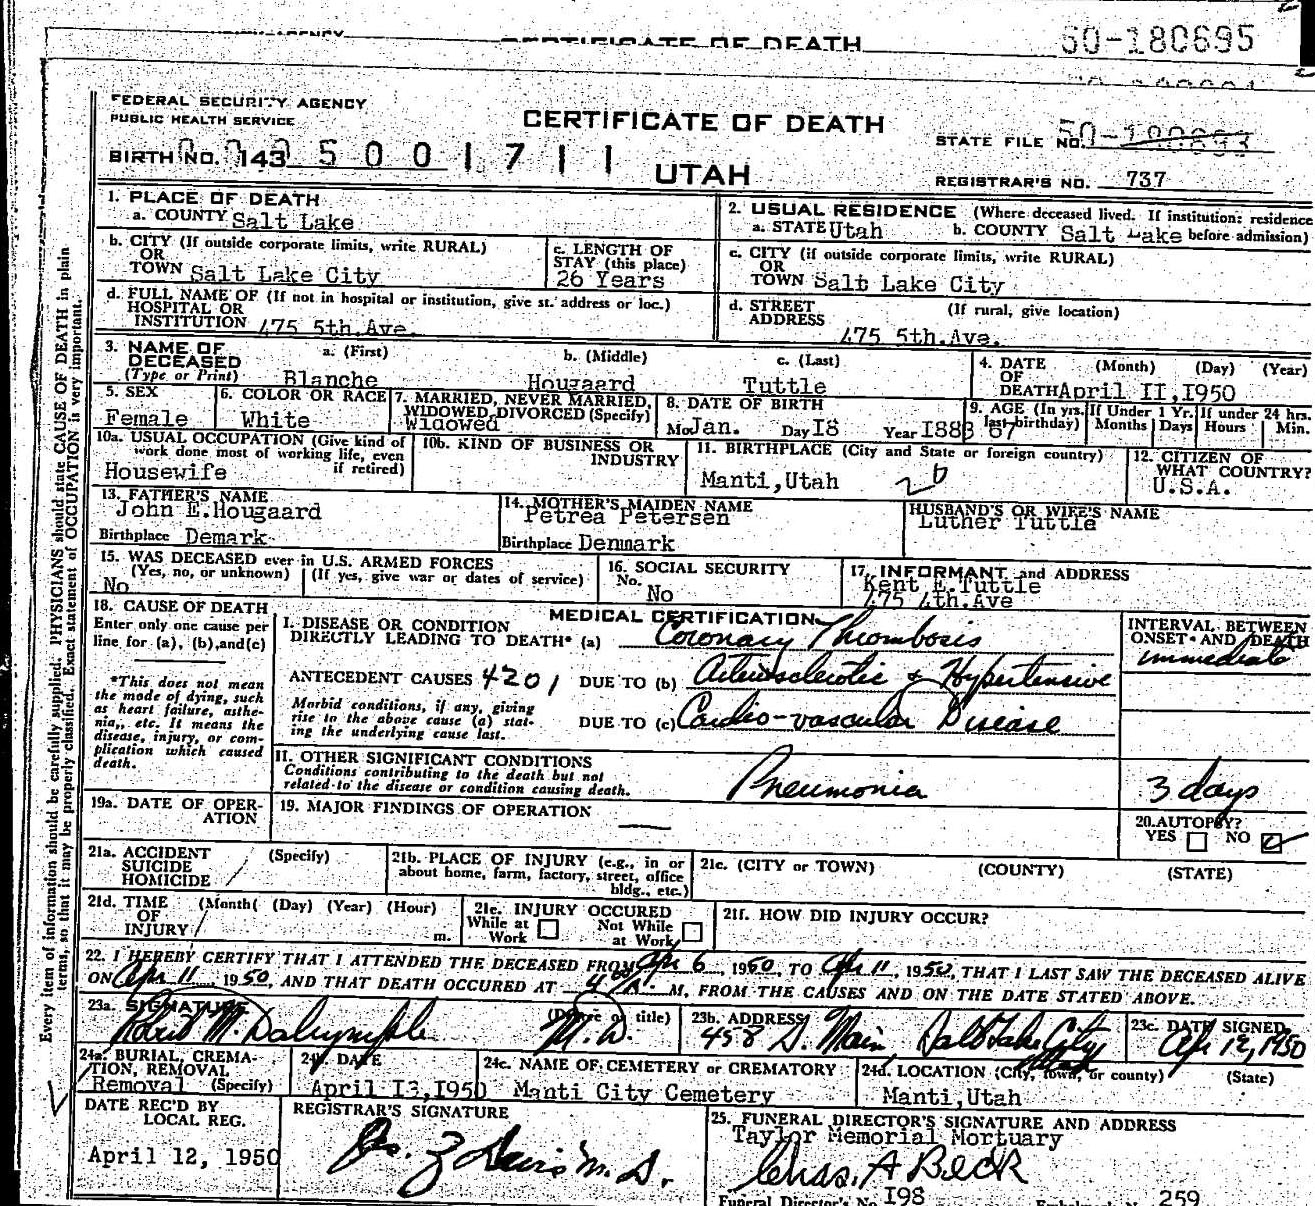 CERTIFICATE OF DEATH
50-180695
FEDERAL SECURITY AGENCY
PUBLIC HEALTH SERVICE
CERTIFICATE OF DEATH
STATE FILE NO.
BIRTH NO. 143 5 0 0 1 7 1 1
UTAH
REGISTRAR'S NO. 737
Every item of information should be carefully supplied. PHYSICIANS should state CAUSE OF DEATH in plain
terms, so that it may be properly classified. Exact statement of OCCUPATION is very important.
1. PLACE OF DEATH
a. COUNTY Salt Lake
2. USUAL RESIDENCE (Where deceased lived. If institution: residence
a. STATE Utah b. COUNTY Salt Lake before admission)
b. CITY (If outside corporate limits, write RURAL)
OR
TOWN Salt Lake City
c. LENGTH OF
STAY (this place)
26 Years
c. CITY (if outside corporate limits, write RURAL)
OR
TOWN Salt Lake City
d. FULL NAME OF (If not in hospital or institution, give st. address or loc.)
HOSPITAL OR
INSTITUTION 475 5th.Ave.
d. STREET (If rural, give location)
ADDRESS
475 5th.Ave.
3. NAME OF a. (First) b. (Middle) c. (Last)
DECEASED
(Type or Print) Blanche Hougaard Tuttle
4. DATE (Month) (Day) (Year)
OF
DEATH April II,I950
5. SEX
Female
6. COLOR OR RACE
White
7. MARRIED, NEVER MARRIED,
WIDOWED, DIVORCED (Specify)
Widowed
8. DATE OF BIRTH
Mo Jan. Day I8 Year I883
9. AGE (In yrs. last birthday) 67
If Under 1 Yr. Months Days
If under 24 hrs. Hours Min.
10a. USUAL OCCUPATION (Give kind of
work done most of working life, even
if retired)
Housewife
10b. KIND OF BUSINESS OR
INDUSTRY
11. BIRTHPLACE (City and State or foreign country)
Manti,Utah
12. CITIZEN OF
WHAT COUNTRY?
U.S.A.
13. FATHER'S NAME
John E.Hougaard
Birthplace Demark
14. MOTHER'S MAIDEN NAME
Petrea Petersen
Birthplace Denmark
HUSBAND'S OR WIFE'S NAME
Luther Tuttle
15. WAS DECEASED ever in U.S. ARMED FORCES
(Yes, no, or unknown) (If yes, give war or dates of service)
No
16. SOCIAL SECURITY
No.
No
17. INFORMANT and ADDRESS
Kent E.Tuttle
475 4th.Ave
18. CAUSE OF DEATH
Enter only one cause per
line for (a), (b), and (c)
*This does not mean
the mode of dying, such
as heart failure, asthe-
nia, etc. It means the
disease, injury, or com-
plication which caused
death.
MEDICAL CERTIFICATION
I. DISEASE OR CONDITION
DIRECTLY LEADING TO DEATH* (a) Coronary Thrombosis
ANTECEDENT CAUSES 4201 DUE TO (b) Arteriosclerotic & Hypertensive
Morbid conditions, if any, giving
rise to the above cause (a) stat-
ing the underlying cause last.
DUE TO (c) Cardio-vascular Disease
INTERVAL BETWEEN
ONSET AND DEATH
immediate
II. OTHER SIGNIFICANT CONDITIONS
Conditions contributing to the death but not
related to the disease or condition causing death.
Pneumonia
3 days
19a. DATE OF OPER-
ATION
19. MAJOR FINDINGS OF OPERATION
20. AUTOPSY?
YES NO
21a. ACCIDENT (Specify)
SUICIDE
HOMICIDE
21b. PLACE OF INJURY (e.g., in or
about home, farm, factory, street, office
bldg., etc.)
21c. (CITY or TOWN) (COUNTY) (STATE)
21d. TIME (Month( (Day) (Year) (Hour)
OF
INJURY m.
21e. INJURY OCCURED
While at Work Not While at Work
21f. HOW DID INJURY OCCUR?
22. I HEREBY CERTIFY THAT I ATTENDED THE DECEASED FROM Apr 6, 1950, TO Apr 11, 1950, THAT I LAST SAW THE DECEASED ALIVE
ON Apr 11 1950, AND THAT DEATH OCCURED AT M, FROM THE CAUSES AND ON THE DATE STATED ABOVE.
23a. SIGNATURE (Degree or title)
M. Dalrymple M. D.
23b. ADDRESS
458 S. Main Salt Lake City
23c. DATE SIGNED
Apr 12, 1950
24a. BURIAL, CREMA-
TION, REMOVAL
Removal (Specify)
24b DATE
April I3,1950
24c. NAME OF CEMETERY or CREMATORY
Manti City Cemetery
24d. LOCATION (City, town, or county) (State)
Manti,Utah
DATE REC'D BY
LOCAL REG.
April 12, 1950
REGISTRAR'S SIGNATURE
M. D.
25. FUNERAL DIRECTOR'S SIGNATURE AND ADDRESS
Taylor Memorial Mortuary
Chas. A Beck
Funeral Director's No. I98
259